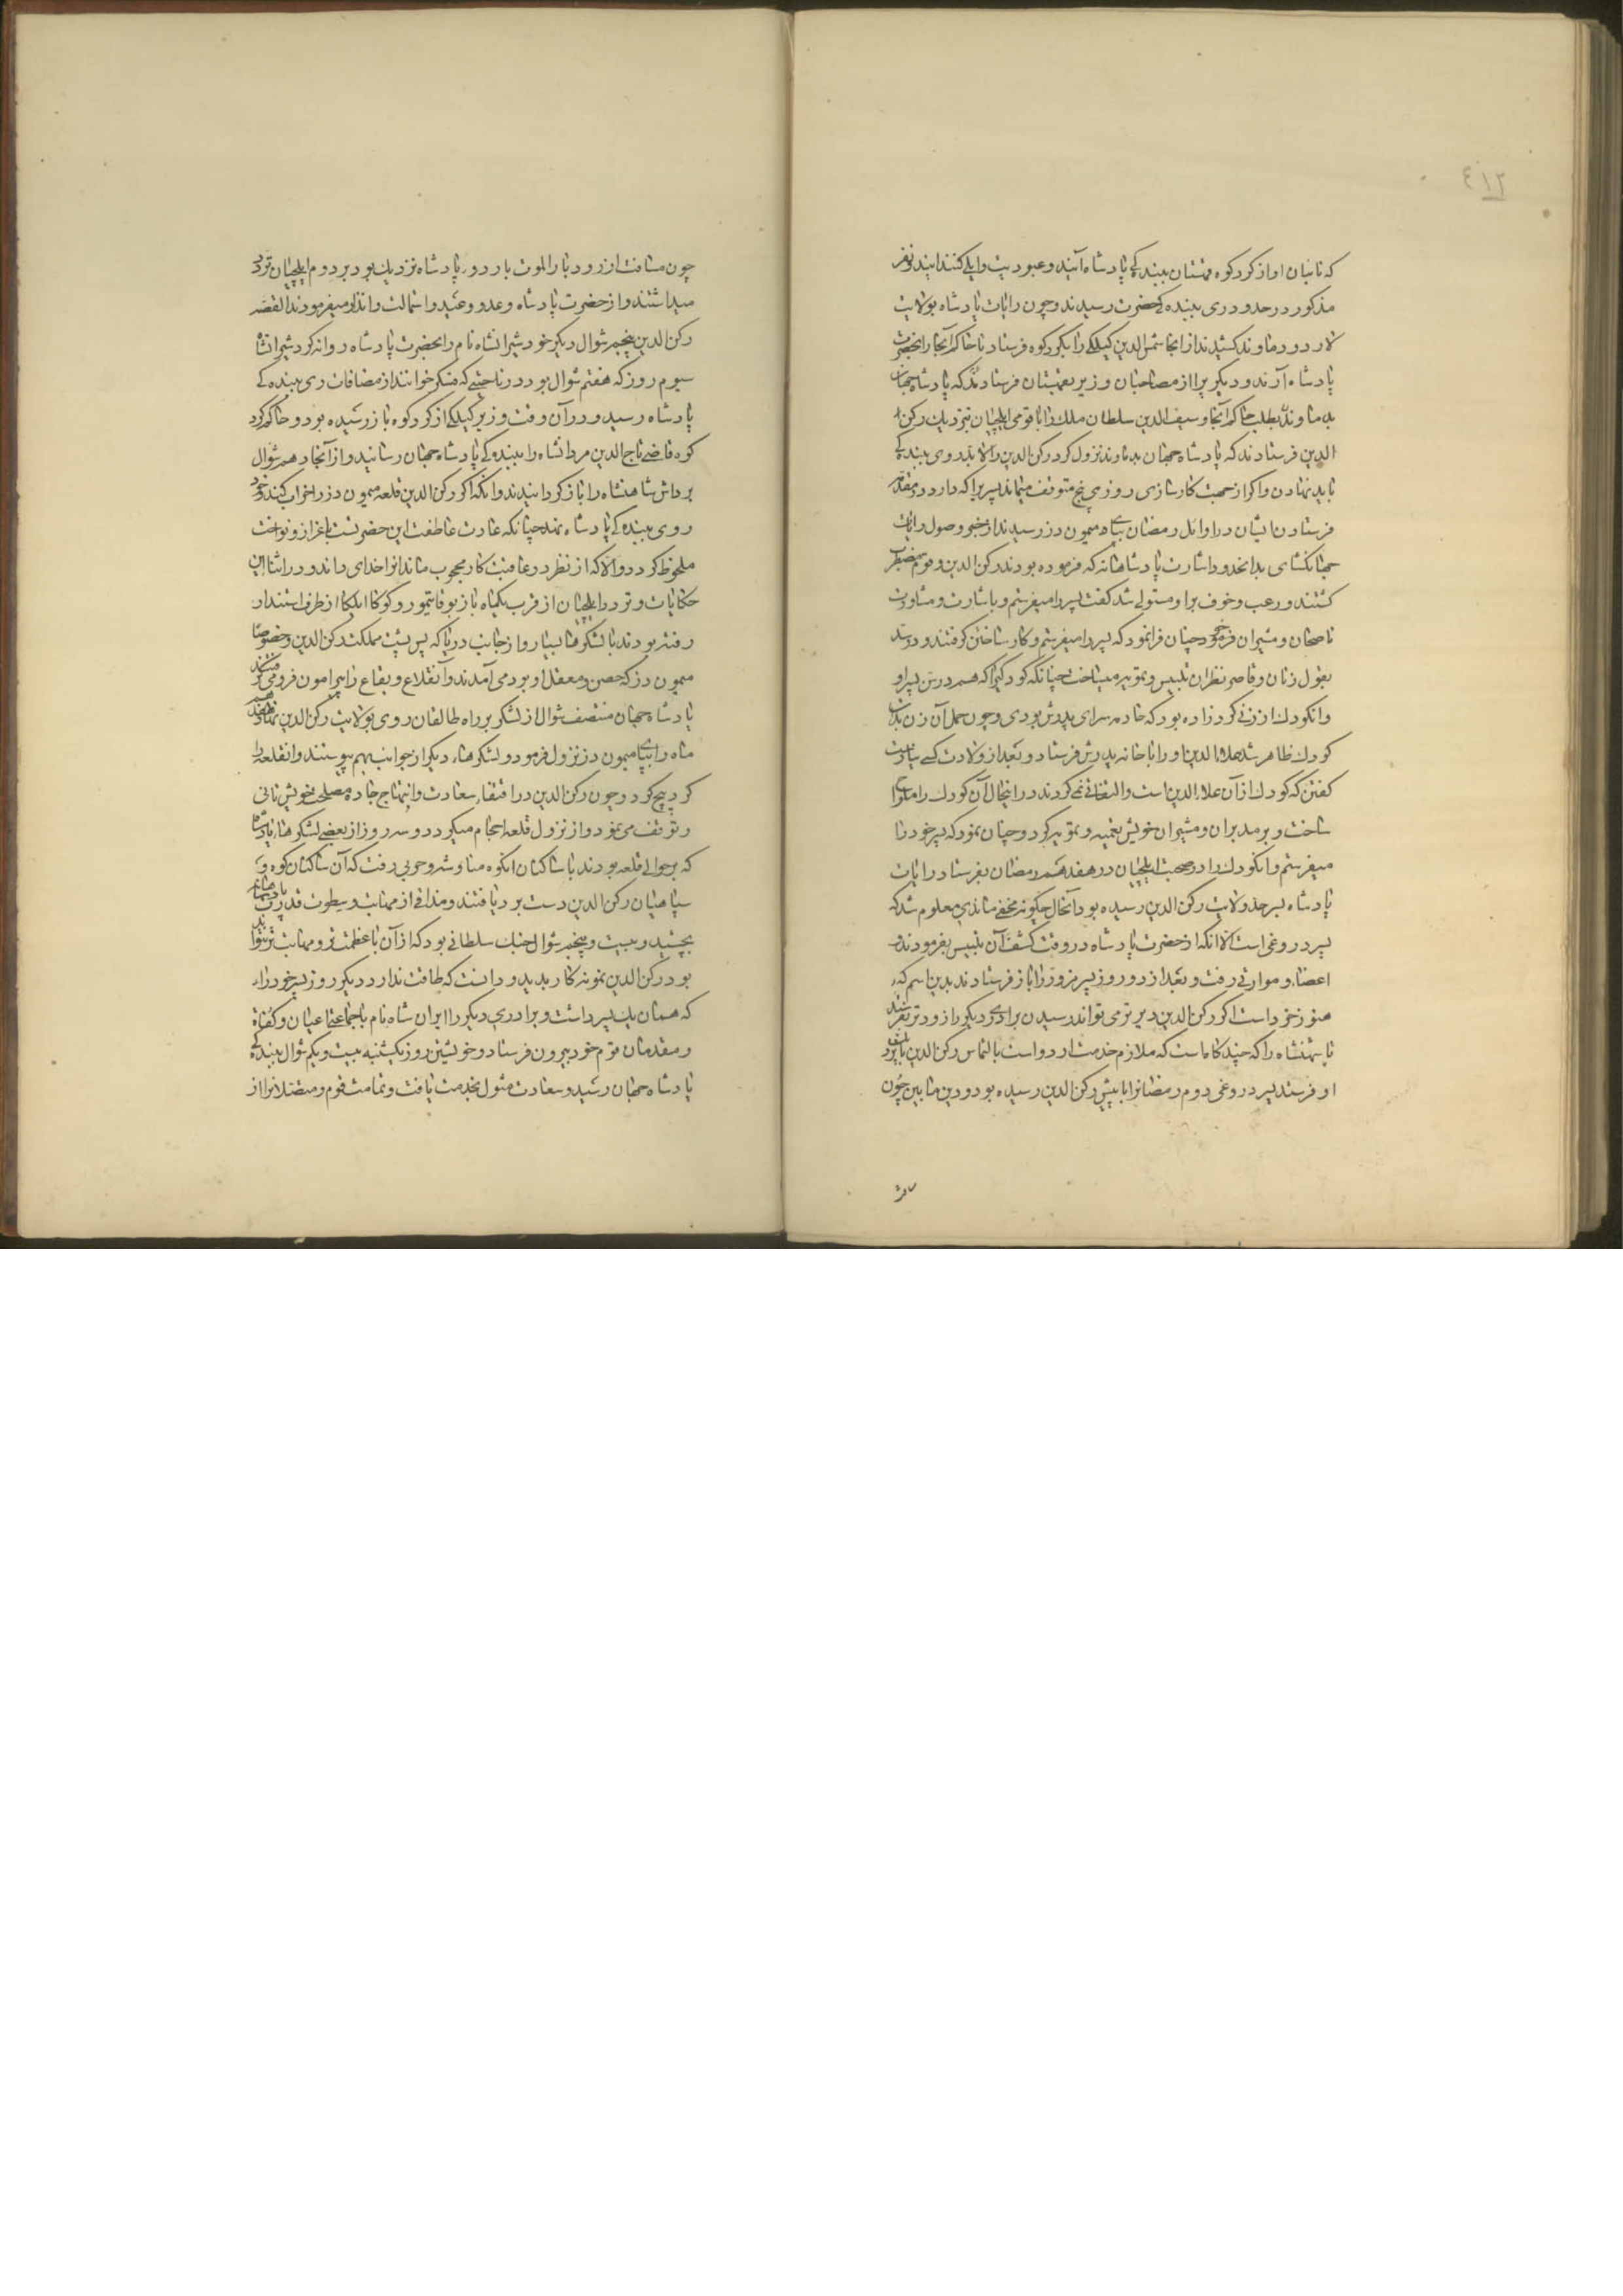 ٤١٢
که نایبان او از کردکوه و قهستان ببندگی پادشاه آیند و عبودیت و ایلی کنند این دو نفر
مذکور در حدود ری ببندگی حضرت رسیدند و چون رایات پادشاه بولایت
لار و دماوند کشیدند از انجا شمس الدین کیلکی را بکردکوه فرستاد تا حاکم آنجا را بحضرت
پادشاه آرند و دیکریرا از مصاحبان وزیر بقهستان فرستادند که پادشاه جهان
بدماوند بطلب حاکم آنجا و سیف الدین سلطان ملک را با قومی ایلچیان بنزدیک رکن
الدین فرستادند که پادشاه جهان بدماوند نزول کرد رکن الدین را لابد روی ببندگی
باید نهادن و اکر از جهت کارسازی روزی پنج متوقف میماند پسریرا که دارد در مقدمه
فرستادن ایشان در اوائل رمضان بپای میمون دز رسیدند از خبر وصول رایات
جهانکشای بدان حدود و اشارت پادشاهانه که فرموده بودند رکن الدین و قوم مضطرب
کشتند و رعب و خوف برو مستولی شد کفت پسر را میفرستم و باشارت و مشاورت
ناصحان و مشیران خود چنان فرا نمود که پسر را میفرستم و کار ساختن کرفتند و در ستد
بقول زنان و قاصر نظران تلبیس و تمویه میساخت چنانکه کودکیرا که هم در سن پسر او
و آن کودک از زنی کرد زاده بود که خادمه سرای پدرش بودی و چون حمل آن زن بدان
کودک ظاهر شد علاء الدین او را با خانه پدرش فرستاد و بعد از ولادت کسی نیارست
کفتن که کودک از آن علاء الدین است و التفاتی نمی کردند در اینحال آن کودک را ملتوا
ساخت و بر مدبران و مشیران خویش تعمیه و تمویه کرد و چنان نمود که پسر خود را
میفرستم و آن کودک را در صحبت ایلچیان در هفدهم رمضان بفرستاد رایات
پادشاه بسر حد ولایت رکن الدین رسیده بود آنحال چکونه مخفی ماندی معلوم شد که
پسر دروغی است الا انکه از حضرت پادشاه در وقت کشف آن تلبیس بفرمودند و
اعضا و مواراتی رفت و بعد از دو روز پسر مزور را باز فرستادند بدین اسم که
هنوز خرد است اکر رکن الدین دیرتر می تواند رسیدن برادری دیکر را زودتر بفرستد
تا شهنشاه را که چند کاه است که ملازم خدمت اردو است بالتماس رکن الدین با نزدیک
او فرستند پسر دروغی دوم رمضانرا با پیش رکن الدین رسیده بود و درین مابین چون
چون مسافت از رودبار الموت با اردوی پادشاه نزدیک بود بر دوام ایلچیان تردد
میداشتند و از حضرت پادشاه وعد و وعید و استمالت و انذار میفرمودند القصه
رکن الدین پنجم شوال دیکر خود شیرانشاه نام را بحضرت پادشاه روانه کرد شیرانشاه
سیوم روز که هفتم شوال بود در ناحیتی که فسکر خوانند از مضافات ری ببندگی
پادشاه رسید و در آن وقت وزیر کیلکی از کردکوه باز رسیده بود و حاکم کرد
کوه قاضی تاج الدین مردانشاه را ببندگی پادشاه جهان رسانید و از آنجا دهم شوال
برادرش شاهنشاه را باز کردانیدند و آنکه اکر رکن الدین قلعه میمون دز را خراب کند و خود
روی ببندگی پادشاه نهد چنانکه عادت عاطفت این حضرتست باعزاز و نواخت
ملحوظ کردد و الا که از نظر در عاقبت کار محجوب ماند انرا خدای داند و در اثنا این
حکایات و تردد ایلچیان از قرب یکماه باز بوقاتیمور و کوکا ایلکا از طرف استندار
رفته بودند با لشکرهاء بسیار و از جانب دریا که پس پشت مملکت رکن الدین و خصوصا
میمون دز که حصن و معقل او بود می آمدند و آن قلاع و بقاع را پیرامون فرو می کرفتند
پادشاه جهان منتصف شوال از لشکر بر راه طالقان روی بولایت رکن الدین نهاد و هفدهم
ماه را بپای میمون دز نزول فرمود و لشکرهاء دیکر از جوانب بهم پیوستند و آن قلعه را
کرد پیچ کرد و چون رکن الدین در اقتفاء سعادت و انتهاج جاده مصلحت خویش تانی
و توقف می نمود و از نزول قلعه احجام میکرد دو سه روز از بعضی لشکرهاء پادشاه
که بر حوالی قلعه بودند با ساکنان انکوه مناوشه و حربی رفت که آن ساکنان کوه و
سپاهیان رکن الدین دست برد یافتند و مذاقی از مهابت و سطوت قدرت پادشاهانه
بچشید و بیست و پنجم شوال جنک سلطانی بود که از آن با عظمت تر و مهابت تر نتواند
بود رکن الدین نمونه کار بدید و دانست که طاقت ندارد دیکر روز پسر خود را،
که همان یک پسر داشت و برادری دیکر را ایران شاه نام با جماعتی اعیان و کفاة
و مقدمان قوم خود بیرون فرستاد و خویشتن روز یکشنبه بیست و یکم شوال ببندگی
پادشاه جهان رسید و سعادت مثول بخدمت یافت و تمامت قوم و متصلانرا از